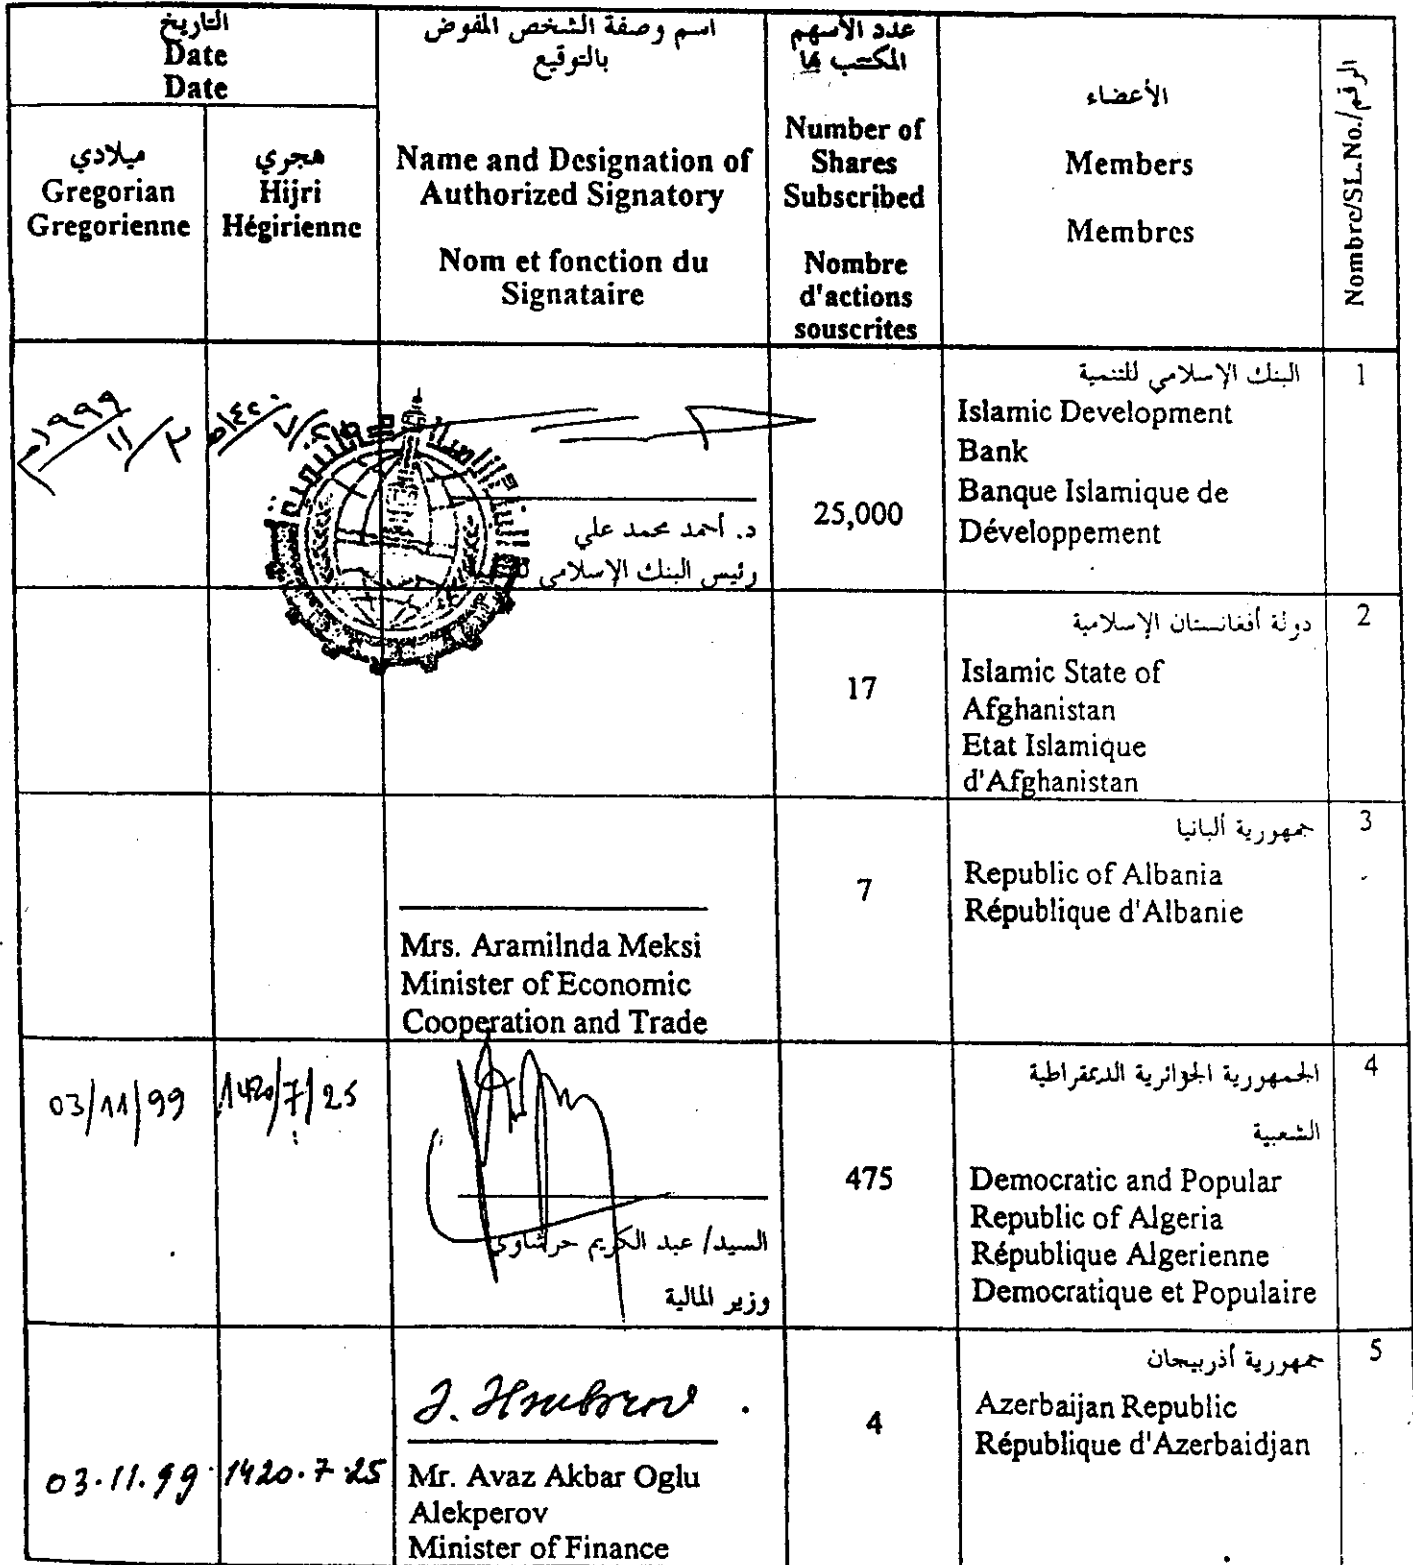 التاريخ
Date
Date
اسم وصفة الشخص المفوض
بالتوقيع
Name and Designation of
Authorized Signatory
Nom et fonction du
Signataire
عدد الأسهم
المكتتب بها
Number of
Shares
Subscribed
Nombre
d'actions
souscrites
الأعضاء
Members
Membres
الرقم/Nombre/SL.No.
ميلادي
Gregorian
Gregorienne
هجري
Hijri
Hégirienne
١٩٩٩م
١١/٣
د. أحمد محمد علي
رئيس البنك الإسلامي
25,000
البنك الإسلامي للتنمية
Islamic Development
Bank
Banque Islamique de
Développement
1
17
دولة أفغانستان الإسلامية
Islamic State of
Afghanistan
Etat Islamique
d'Afghanistan
2
Mrs. Aramilnda Meksi
Minister of Economic
Cooperation and Trade
7
جمهورية ألبانيا
Republic of Albania
République d'Albanie
3
03/11/99
1420/7/25
السيد/ عبد الكريم حرشاوي
وزير المالية
475
الجمهورية الجزائرية الديمقراطية
الشعبية
Democratic and Popular
Republic of Algeria
République Algerienne
Democratique et Populaire
4
03.11.99
1420.7.25
Mr. Avaz Akbar Oglu
Alekperov
Minister of Finance
4
جمهورية أذربيجان
Azerbaijan Republic
République d'Azerbaidjan
5